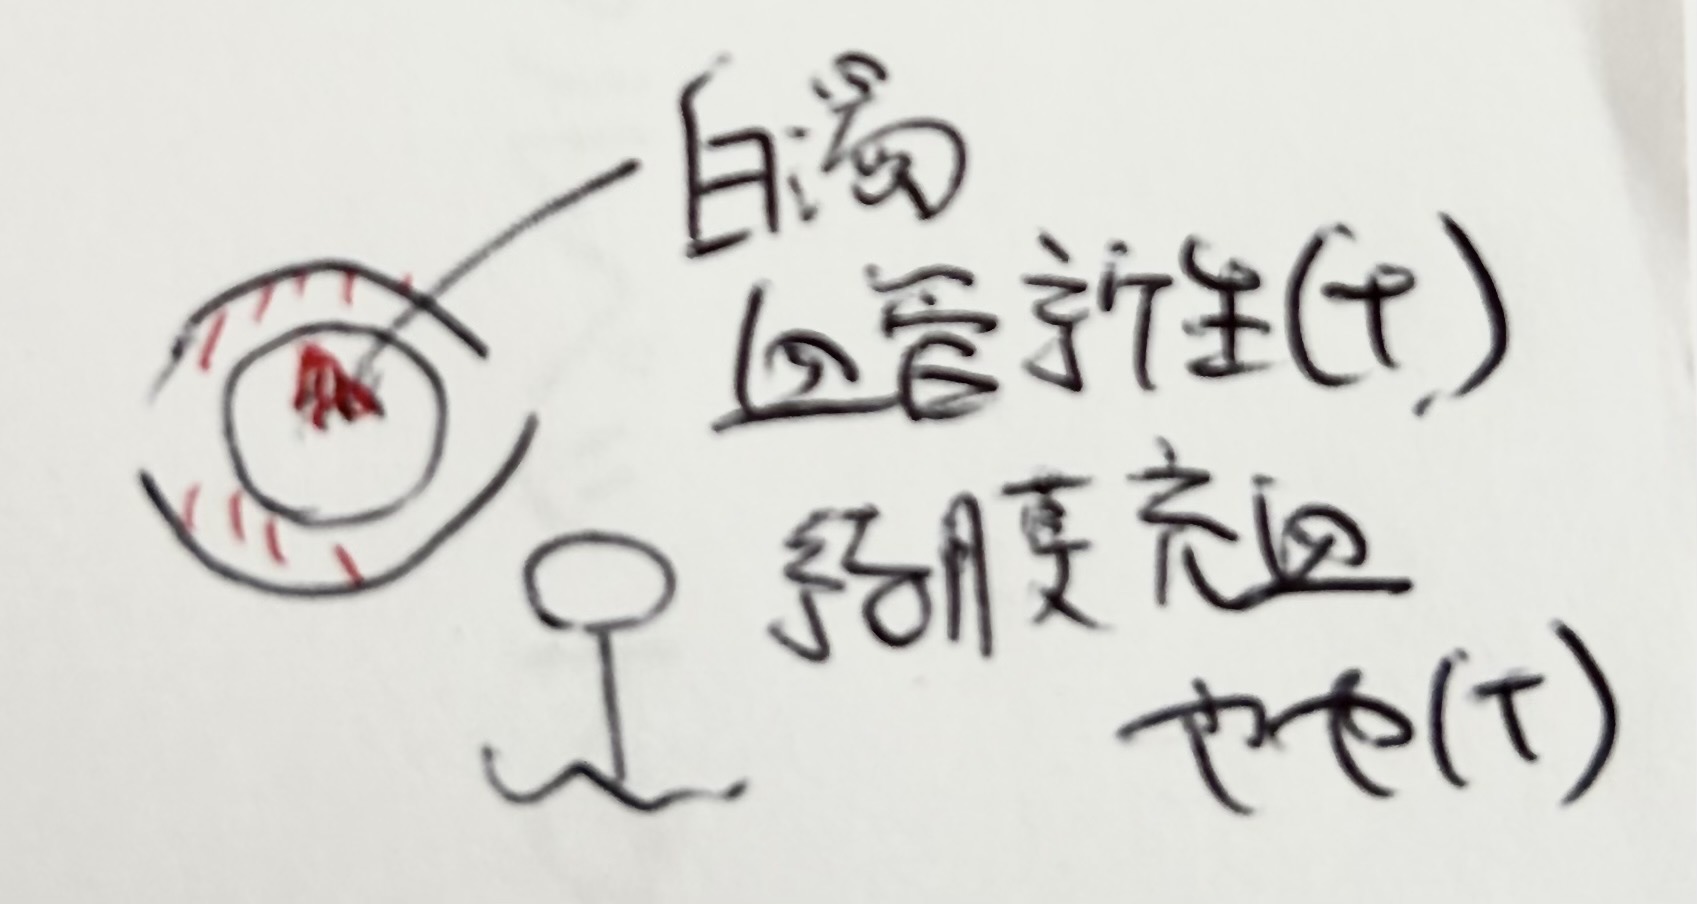 白濁
血管新生(+)
結膜充血
やや(+)